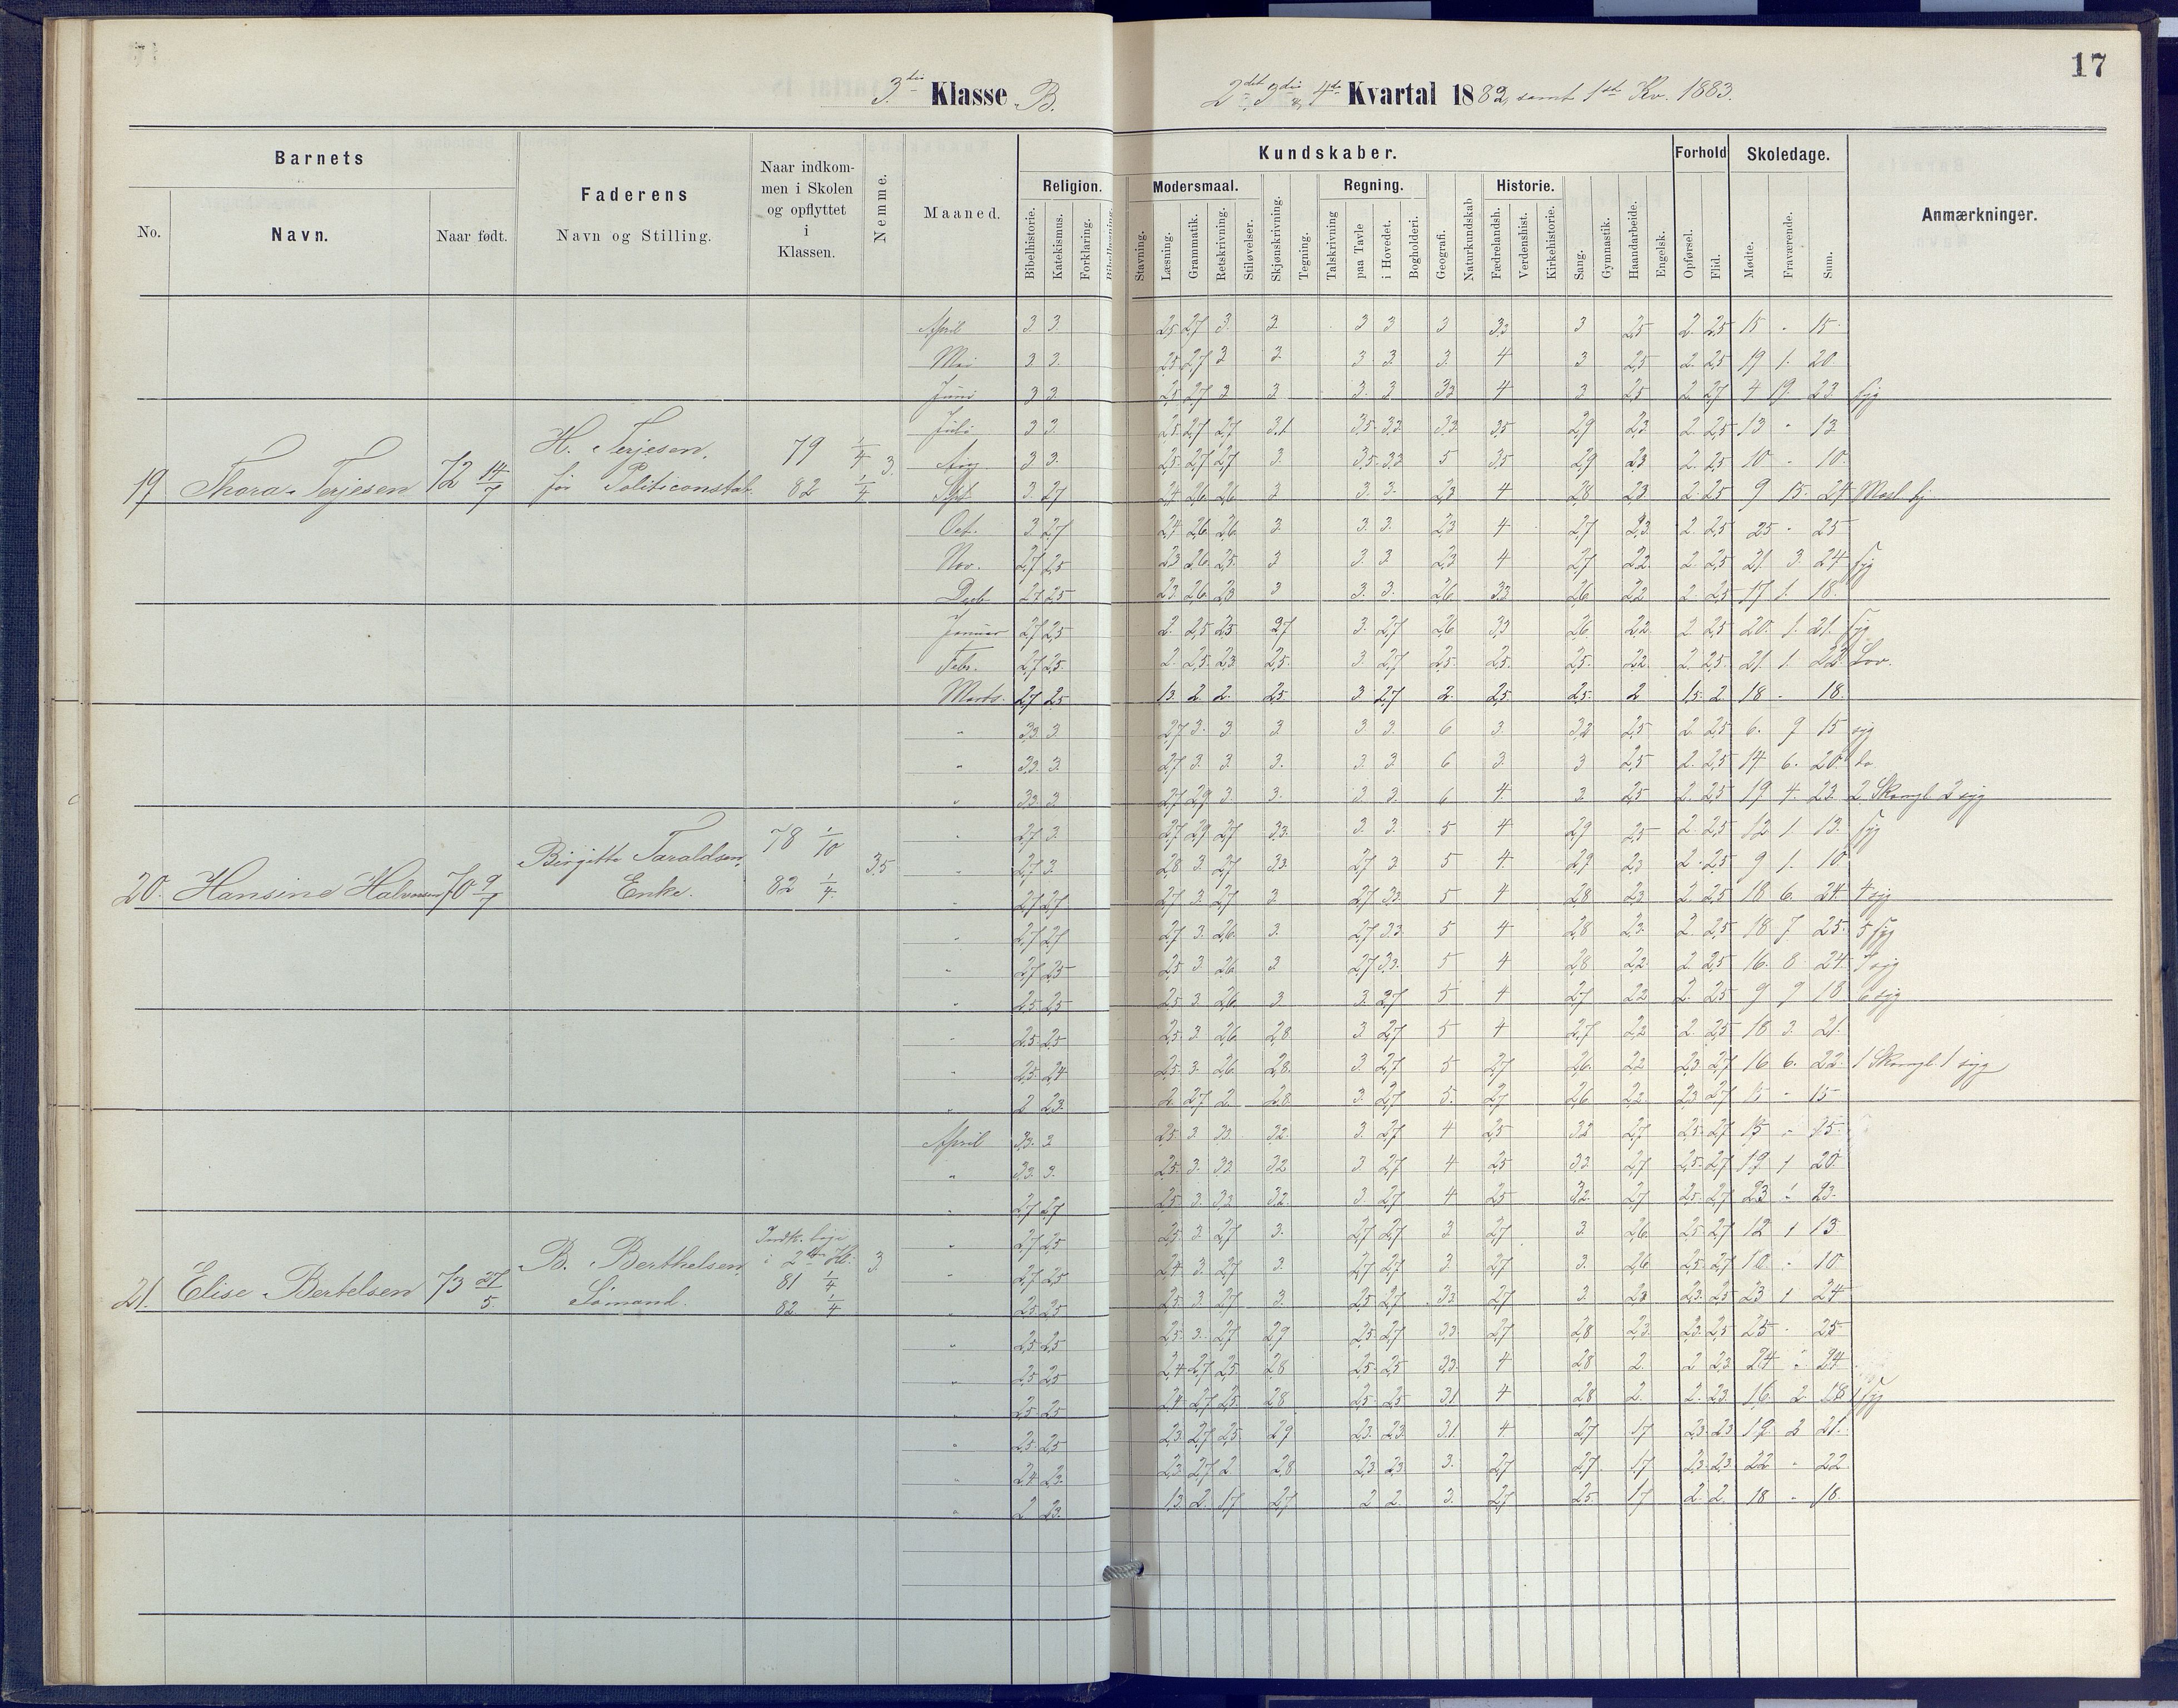 17
3die Klasse B.
2det 3die & 4de Kvartal 1882, samt 1ste Kv. 1883.
Barnets
No.
Navn.
Naar født.
Faderens
Navn og Stilling.
Naar indkom-
men i Skolen
og opflyttet
i
Klassen.
Nemme.
Maaned.
Kundskaber.
Religion.
Bibelhistorie.
Katekismus.
Forklaring.
Modersmaal.
Stavning.
Læsning.
Grammatik.
Retskrivning.
Stiløvelser.
Skjønskrivning.
Tegning.
Regning.
Talskrivning
paa Tavle
i Hovedet.
Bogholderi.
Geografi.
Naturkundskab
Historie.
Fædrelandsh.
Verdenshist.
Kirkehistorie.
Sang.
Gymnastik.
Haandarbeide.
Engelsk.
Forhold
Opførsel.
Flid.
Skoledage.
Møde.
Fraværende.
Sum.
Anmærkninger.
19 Thora Terjesen 72 14/7
H. Terjesen,
før Politiconstab.
79 1/4
82 1/4
3
April 3 3. 2,5 2,7 3. 3 3 3 3 3,3 3 2,5 2 2,5 15 - 15
Mai 3 3. 2,5 2,7 3 3 3 3 3. 4 3 2,5 2 2,5 19 1. 20
Juni 3 3 2,5 2,7 3 3 3. 3 3,3 4 3 2,5 2 2,7 4 19. 23 syg
Juli 3 3. 2,5 2,7 2,7 3,1 3,5 3,3 3,3 3,5 2,9 2,3 2 2,5 13 - 13
Aug. 3 3. 2,5 2,7 2,7 3. 3,5 3,3 5 3,5 2,9 2,3 2 2,5 10 - 10.
Sept. 3. 2,7 2,4 2,6 2,6 3 3. 3. 2,3 4 2,8 2,3 2 2,5 9 15. 24
Oct. 3 2,7 2,4 2,6 2,6 3. 3. 3. 2,3 4 2,7 2,3 2 2,5 25 - 25
Nov. 2,7 2,5 2,3 2,6 2,5 3 3. 3 2,3 4 2,7 2,2 2 2,5 21 3. 24 syg
Decb 2,7 2,5 2,3 2,6 2,3 3 3. 3. 2,6 3,3 2,6 2,2 2 2,5 17 1. 18.
Januar 2,7 2,5 2. 2,5 2,5 2,7 3. 2,7 2,6 3,3 2,6 2,2 2 2,5 20. 1. 21. syg
Febr. 2,7 2,5 2. 2,5 2,3 2,5. 3 2,7 2,5 2,5 2,5 2,2 2 2,5 21 1. 22 Lov.
Marts. 2,7 2,5 1,3 2 2. 2,5 3 2,7 2. 2,5 2,5 2 1,5 2 18 - 18.
20. Hansine Halvorsen 70 9/7
Birgitte Taraldsen,
Enke.
78 1/10
82 1/4
3,5
" 3,3. 3. 2,7 3. 3 3 3 3. 6 3. 3,2 2,5 2 2,5 6. 9 15 syg
" 3,3. 3. 2,7 3. 3. 3. 3 3 6 3. 3 2,5 2. 2,5 14 6. 20 do
" 3,3. 3 2,7 2,9 3. 3. 3 3. 6 4. 3 2,5 2. 2,5 19 4. 23. 2 Skomgl. 2 syg
" 2,7 3. 2,7 2,9 2,7 3,3. 3. 3. 5 4 2,9 2,5 2 2,5 12 1. 13. syg
" 2,7 3. 2,8 3. 2,7 3,3. 2,7 3 5 4. 2,9 2,3 2 2,5 9 1. 10
" 2,7 2,7 2,7 3. 2,7 3. 2,7 3,3 5 4 2,8 2,3 2 2,5 18 6. 24. 4 syg
" 2,7 2,7 2,7 3. 2,6 3. 2,7 3,3 5 4 2,8 2,3 2 2,5 18 7 25. 5 syg
" 2,7 2,5 2,5 3. 2,6 3 2,7 3,3. 5 4 2,8 2,2 2 2,5 16. 8 24. 7 syg
" 2,5 2,5 2,5 3. 2,6 3 3. 2,7 5 4 2,7 2,2 2. 2,5 9 9 18. 6 syg
" 2,5 2,5 2,5 3. 2,6 2,8 3 2,7 5 4 2,7 2,2 2 2,5 18 3. 21.
" 2,5 2,4 2,5 3. 2,6 2,8. 3. 2,7 5 2,7 2,6. 2,2 2,3 2,7 16 6. 22 1 Skomgl. 1 syg
" 2 2,3. 2 2,7 2. 2,8 3. 2,7 5. 2,7 2,6 2,2 2,3 2,7 15 - 15
21. Elise Bertelsen 73 27/5
B. Berthelsen,
Sømand.
81 1/4
82 1/4
3
April 3,3. 3 2,5 3 3,3. 3,2. 3. 2,7 4 2,5 3,2 2,7 2,5 2,7 15 - 15.
" 3,3. 3. 2,5 3. 3,3. 3,2 3 2,7 4 2,5 3,3 2,7 2,5 2,7 19 1 20.
" 2,7 2,7 2,5 3 3,3 3,2. 3. 2,7 4 2,5 3,2. 2,7 2,5 2,7 23 - 23.
" 2,7 2,5 2,5 3 2,7 3. 2,7 2,7 3 2,7 3. 2,6 2,5 2,7 12 1 13.
" 2,7 2,5 2,4 3. 2,7 3. 2,7 2,7 3. 2,7 3. 2,6 2,5 2,7 10. - 10.
" 2,5 2,5 2,5 3. 2,7 3. 2,5 2,7 3,3. 2,7 3. 2,3 2,3 2,5 23 1 24
" 2,5 2,5 2,5 3. 2,7 2,9 2,5 2,7 3,3 2,7 2,8 2,3. 2,3 2,5 25 - 25
" 2,5 2,5 2,4 2,7 2,5 2,8 2,5 2,5 3,3. 4 2,8 2. 2 2,3 24 - 24
" 2,5 2,5 2,4 2,7 2,5 2,8 2,5 2,5 3,1 4 2,8 2. 2 2,3 16. 2 18 1 syg
" 2,5 2,5 2,3 2,7 2,5 2,9 2,3 2,3. 3,1 4. 2,7 1,7 2,3 2,3 19 2 21.
" 2,4 2,3. 2,3 2,7 2 2,8 2,3 2,3 3. 2,7 2,7 1,7 2,3 2,3 22 - 22
" 2 2,3. 1,3. 2. 1,7 2,7 2 2. 3. 2,7 2,5 1,7 2. 2. 18 - 18.